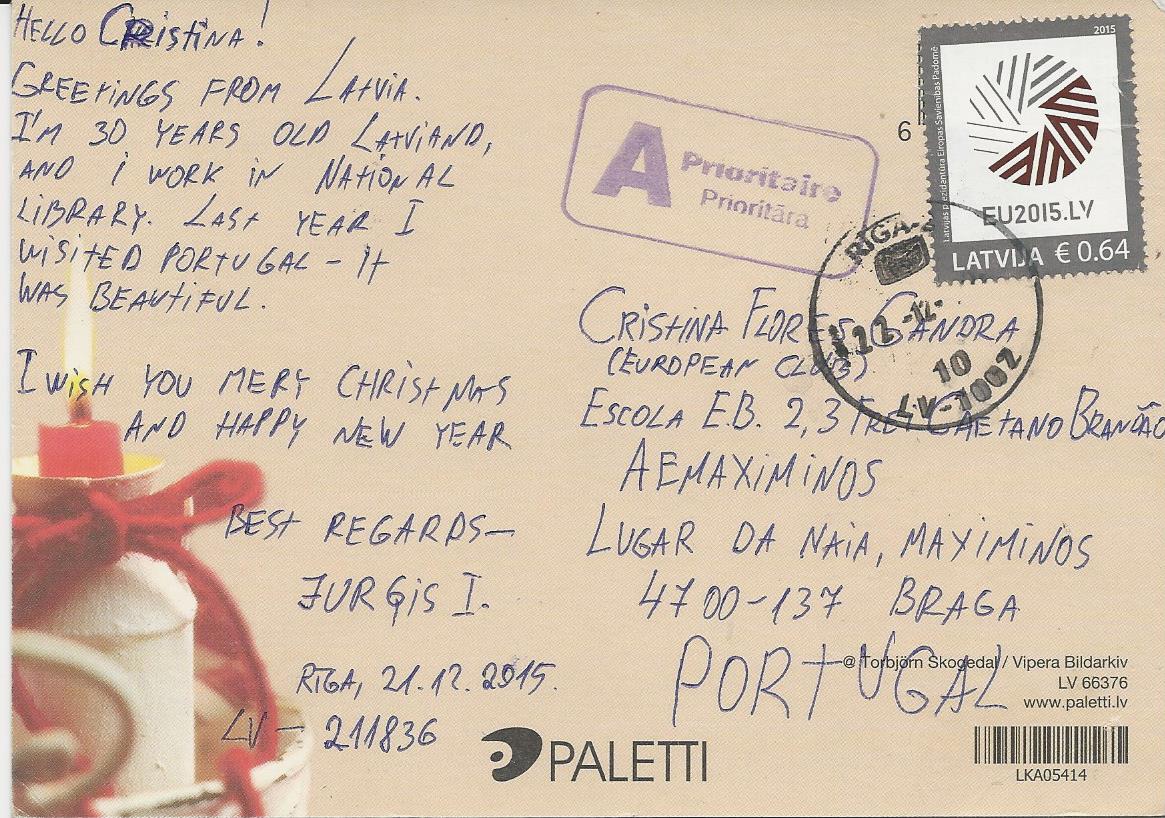 HELLO CRISTINA!
GREETINGS FROM LATVIA.
I'M 30 YEARS OLD LATVIAND,
AND I WORK IN NATIONAL
LIBRARY. LAST YEAR I
WISITED PORTUGAL - IT
WAS BEAUTIFUL.
I WISH YOU MERY CHRISTMAS
AND HAPPY NEW YEAR
BEST REGARDS—
JURĢIS I.
RĪGA, 21.12.2015.
LV - 211836
A Prioritaire
Prioritāra
6
2015
Latvijas prezidentūra Eiropas Savienības Padomē
EU2015.LV
LATVIJA € 0.64
RĪGA-
22-12-
10
LV-1002
CRISTINA FLORES GANDRA
(EUROPEAN CLUB)
ESCOLA E.B. 2,3 FREI CAETANO BRANDÃO
AEMAXIMINOS
LUGAR DA NAIA, MAXIMINOS
4700-137 BRAGA
PORTUGAL
@ Torbjörn Skogedal / Vipera Bildarkiv
LV 66376
www.paletti.lv
PALETTI
LKA05414